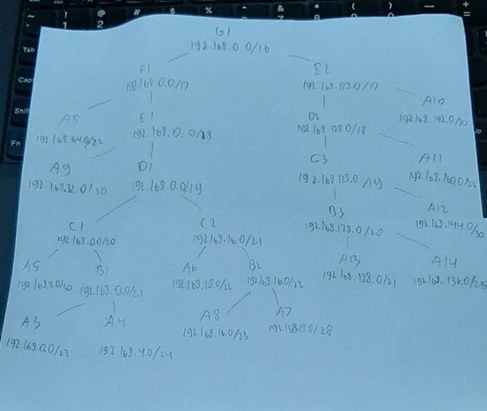 G1
192.168.0.0/16
F1
192.168.0.0/17
E2
192.168.128.0/17
A8
192.168.64.0/22
E1
192.168.0.0/18
D2
192.168.128.0/18
A10
192.168.192.0/30
A9
192.168.32.0/30
D1
192.168.0.0/19
C3
192.168.128.0/19
A11
192.168.160.0/22
C1
192.168.0.0/20
C2
192.168.16.0/21
B3
192.168.128.0/20
A12
192.168.144.0/30
A5
B1
192.168.0.0/21
A6
192.168.20.0/22
B2
192.168.16.0/22
A13
192.168.128.0/21
A14
192.168.136.0/25
A3
192.168.0.0/22
A4
192.168.4.0/24
A8
192.168.16.0/23
A7
192.168.18.0/28